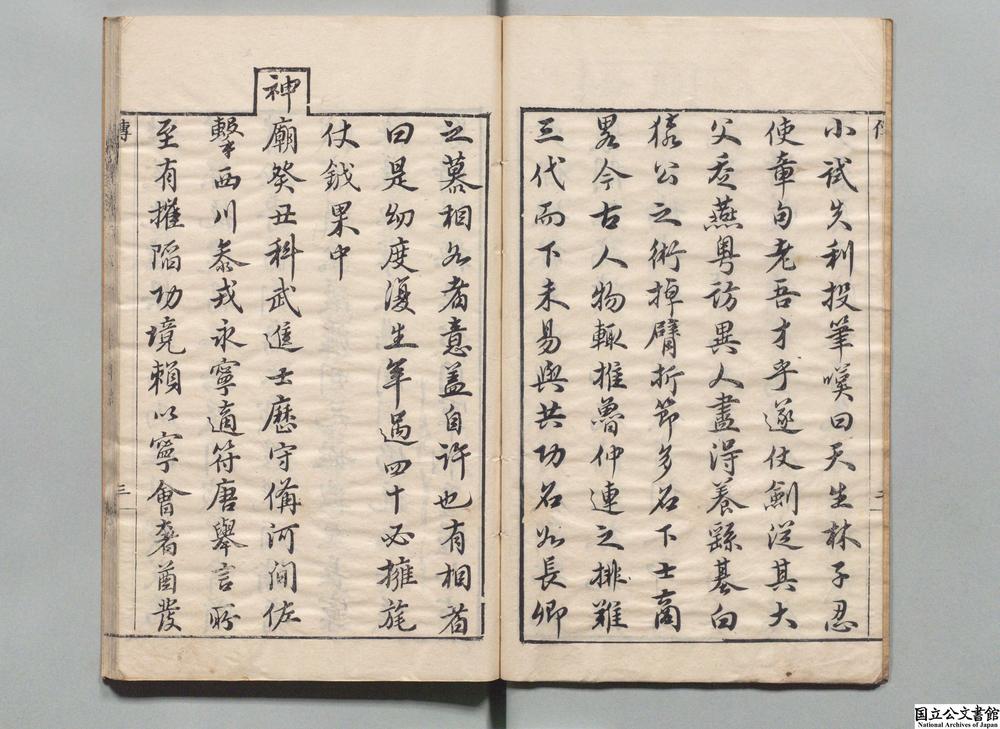 小試失利投筆嘆曰天生林子忍
使章句老吾才乎遂仗劍從其大
父走燕粵訪異人盡得養繇基白
猿公之術掉臂折節多名下士商
畧今古人物輒推魯仲連之排難
三代而下未易與共功名如長卿
之慕相如者意蓋自許也有相者
曰是幼度復生年過四十必擁旄
仗鉞果中
神廟癸丑科武進士歷守備河間佐
擊西川叅戎永寧適符唐舉言所
至有摧陷功境賴以寧會奢酋發
傳
三
国立公文書館
National Archives of Japan